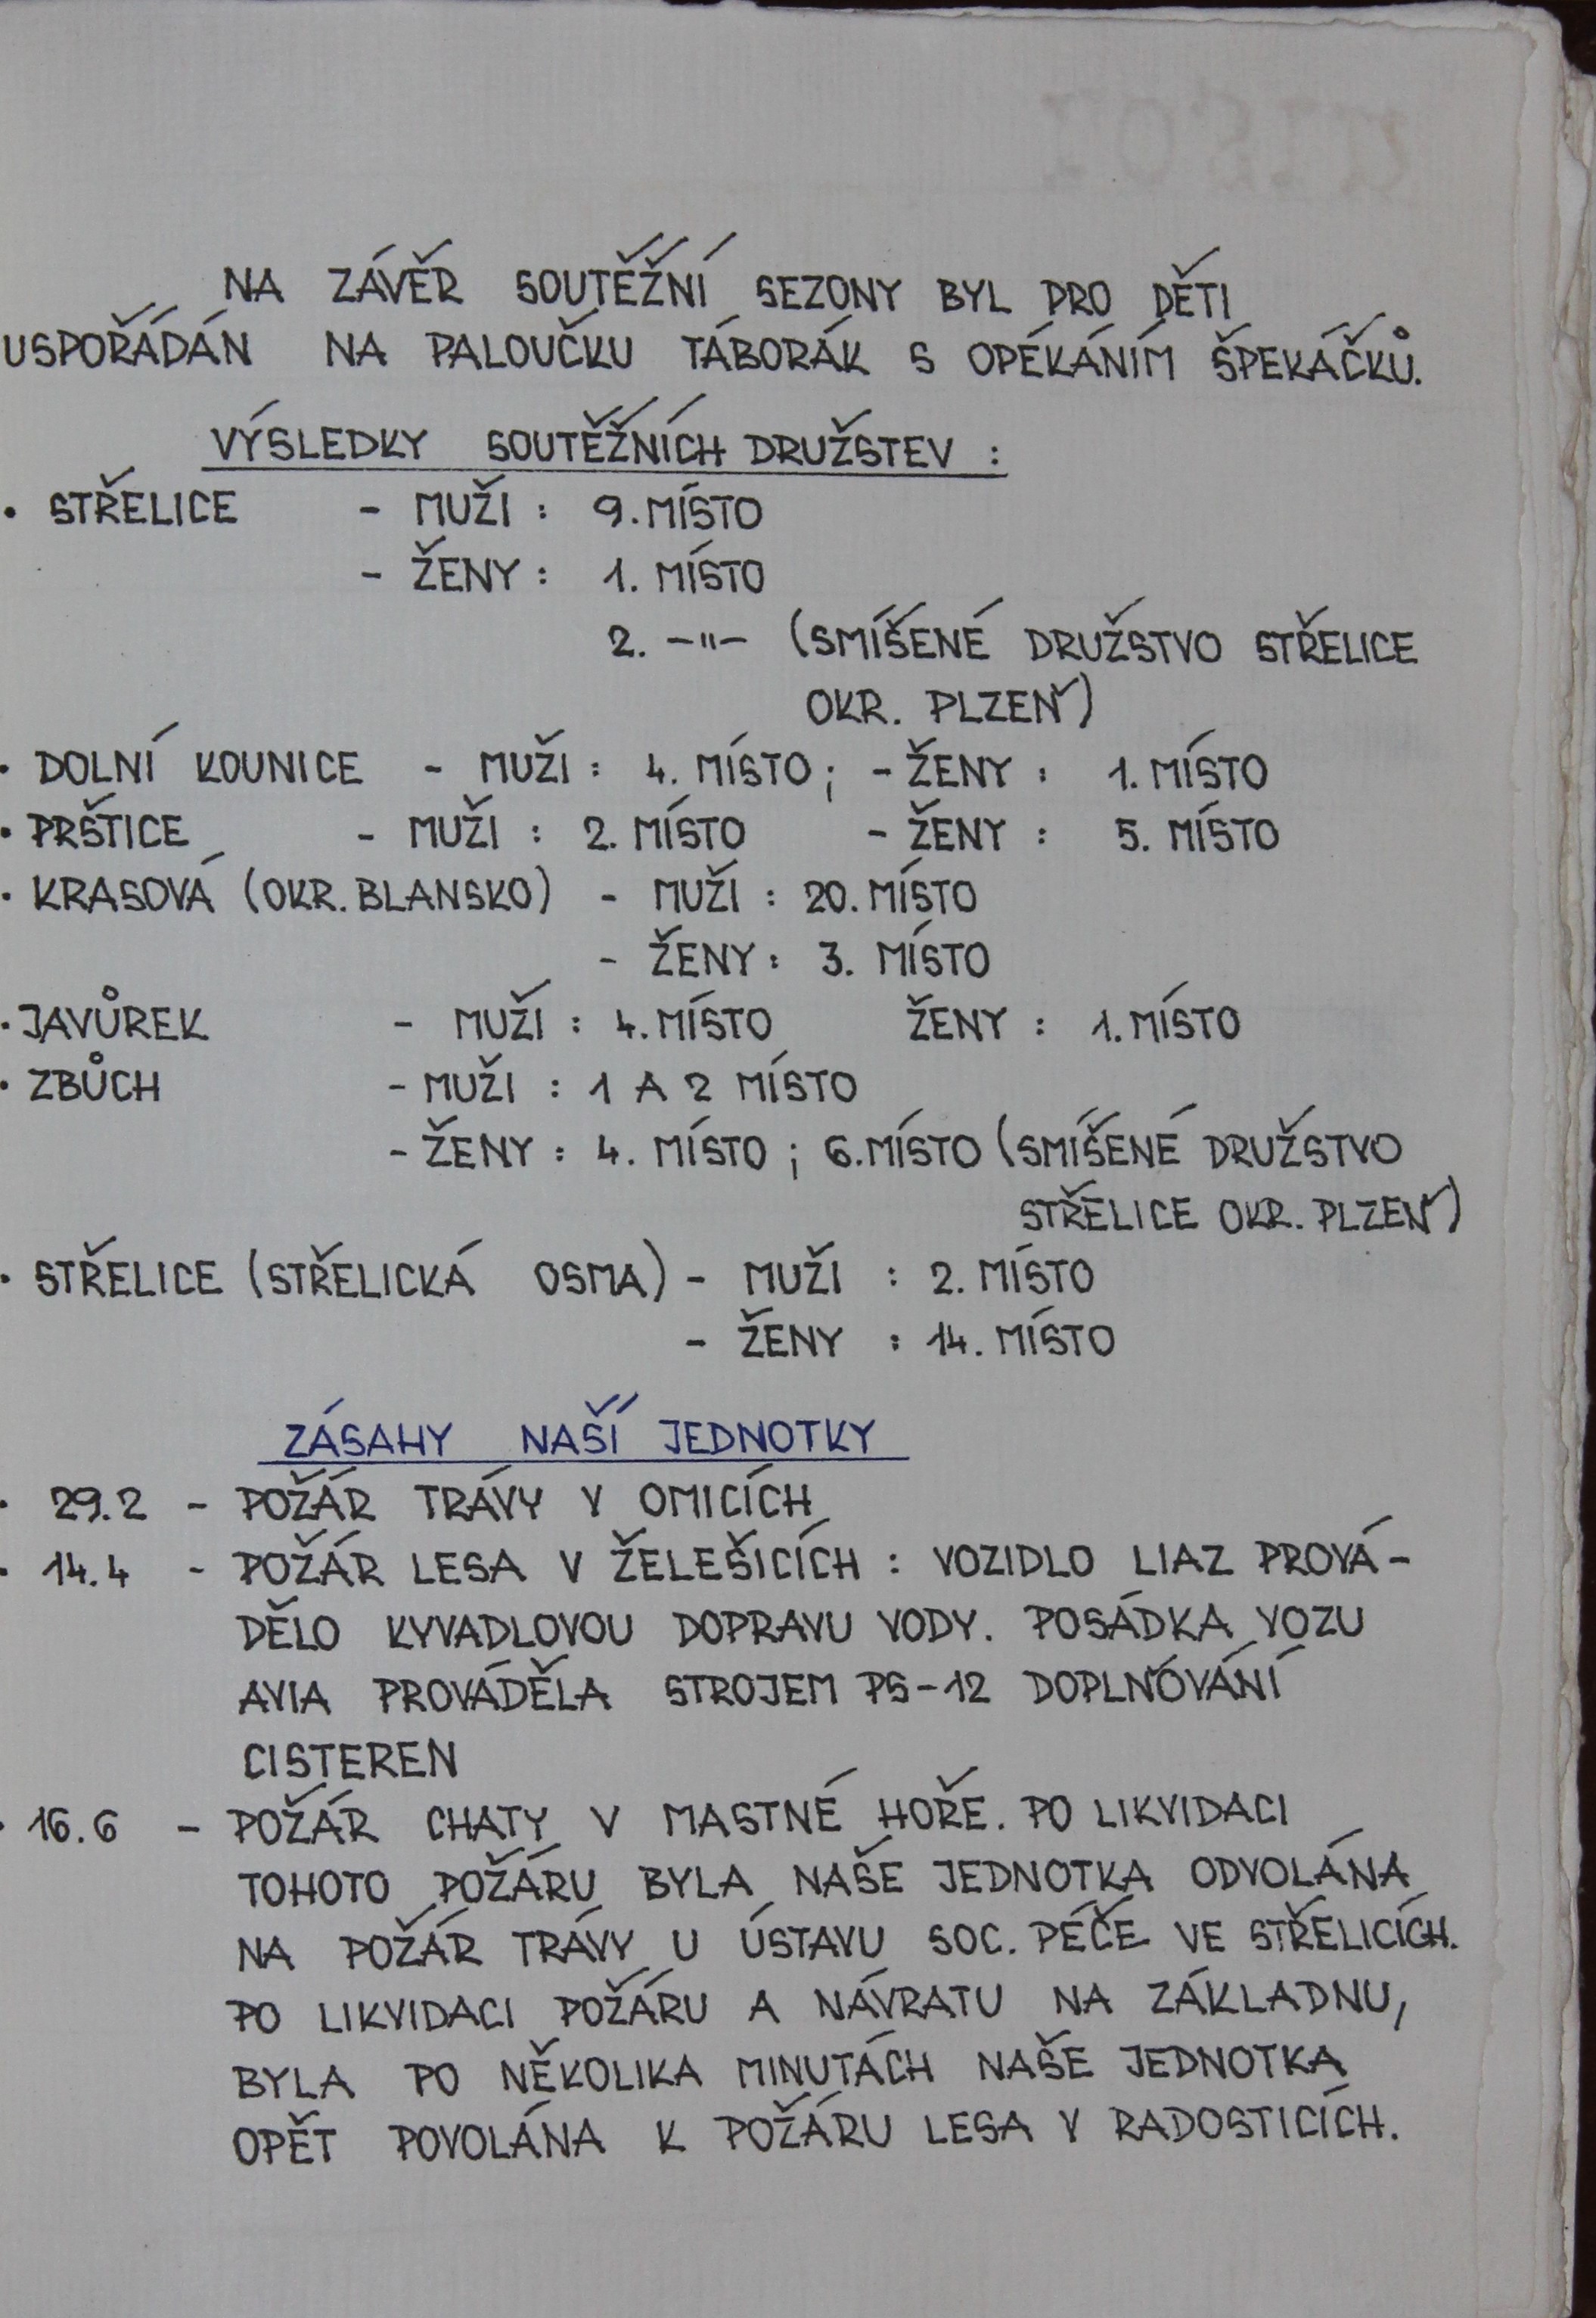 NA ZÁVĚR SOUTĚŽNÍ SEZONY BYL PRO DĚTI
USPOŘÁDÁN NA PALOUČKU TÁBORÁK S OPÉKÁNÍM ŠPEKÁČKŮ.
VÝSLEDKY SOUTĚŽNÍCH DRUŽSTEV :
• STŘELICE - MUŽI : 9. MÍSTO
- ŽENY : 1. MÍSTO
2. -"- (SMÍŠENÉ DRUŽSTVO STŘELICE
OKR. PLZEŇ)
• DOLNÍ KOUNICE - MUŽI : 4. MÍSTO ; - ŽENY : 1. MÍSTO
• PRŠTICE - MUŽI : 2. MÍSTO - ŽENY : 5. MÍSTO
• KRASOVÁ (OKR. BLANSKO) - MUŽI : 20. MÍSTO
- ŽENY : 3. MÍSTO
• JAVŮREK - MUŽI : 4. MÍSTO ŽENY : 1. MÍSTO
• ZBŮCH - MUŽI : 1 A 2 MÍSTO
- ŽENY : 4. MÍSTO ; 6. MÍSTO (SMÍŠENÉ DRUŽSTVO
STŘELICE OKR. PLZEŇ)
• STŘELICE (STŘELICKÁ OSMA) - MUŽI : 2. MÍSTO
- ŽENY : 14. MÍSTO
ZÁSAHY NAŠÍ JEDNOTKY
• 29.2 - POŽÁR TRÁVY V OMICÍCH
• 14.4 - POŽÁR LESA V ŽELEŠICÍCH : VOZIDLO LIAZ PROVÁ-
DĚLO KYVADLOVOU DOPRAVU VODY. POSÁDKA VOZU
AVIA PROVÁDĚLA STROJEM PS-12 DOPLŇOVÁNÍ
CISTEREN
• 16.6 - POŽÁR CHATY V MASTNÉ HOŘE. PO LIKVIDACI
TOHOTO POŽÁRU BYLA NAŠE JEDNOTKA ODVOLÁNA
NA POŽÁR TRÁVY U ÚSTAVU SOC. PÉČE VE STŘELICÍCH.
PO LIKVIDACI POŽÁRU A NÁVRATU NA ZÁKLADNU,
BYLA PO NĚKOLIKA MINUTÁCH NAŠE JEDNOTKA
OPĚT POVOLÁNA K POŽÁRU LESA V RADOSTICÍCH.